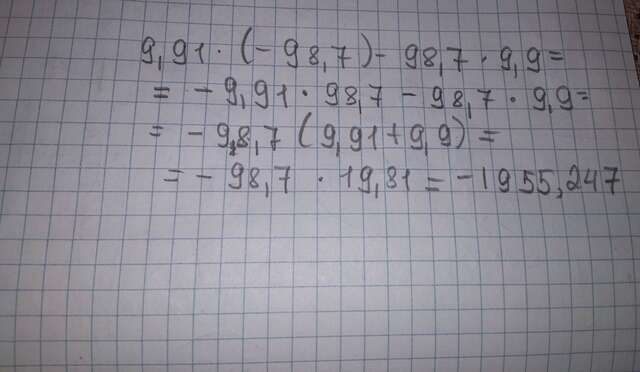 9,91 · (-98,7) - 98,7 · 9,9 =
= - 9,91 · 98,7 - 98,7 · 9,9 =
= - 98,7 (9,91 + 9,9) =
= - 98,7 · 19,81 = -1955,247